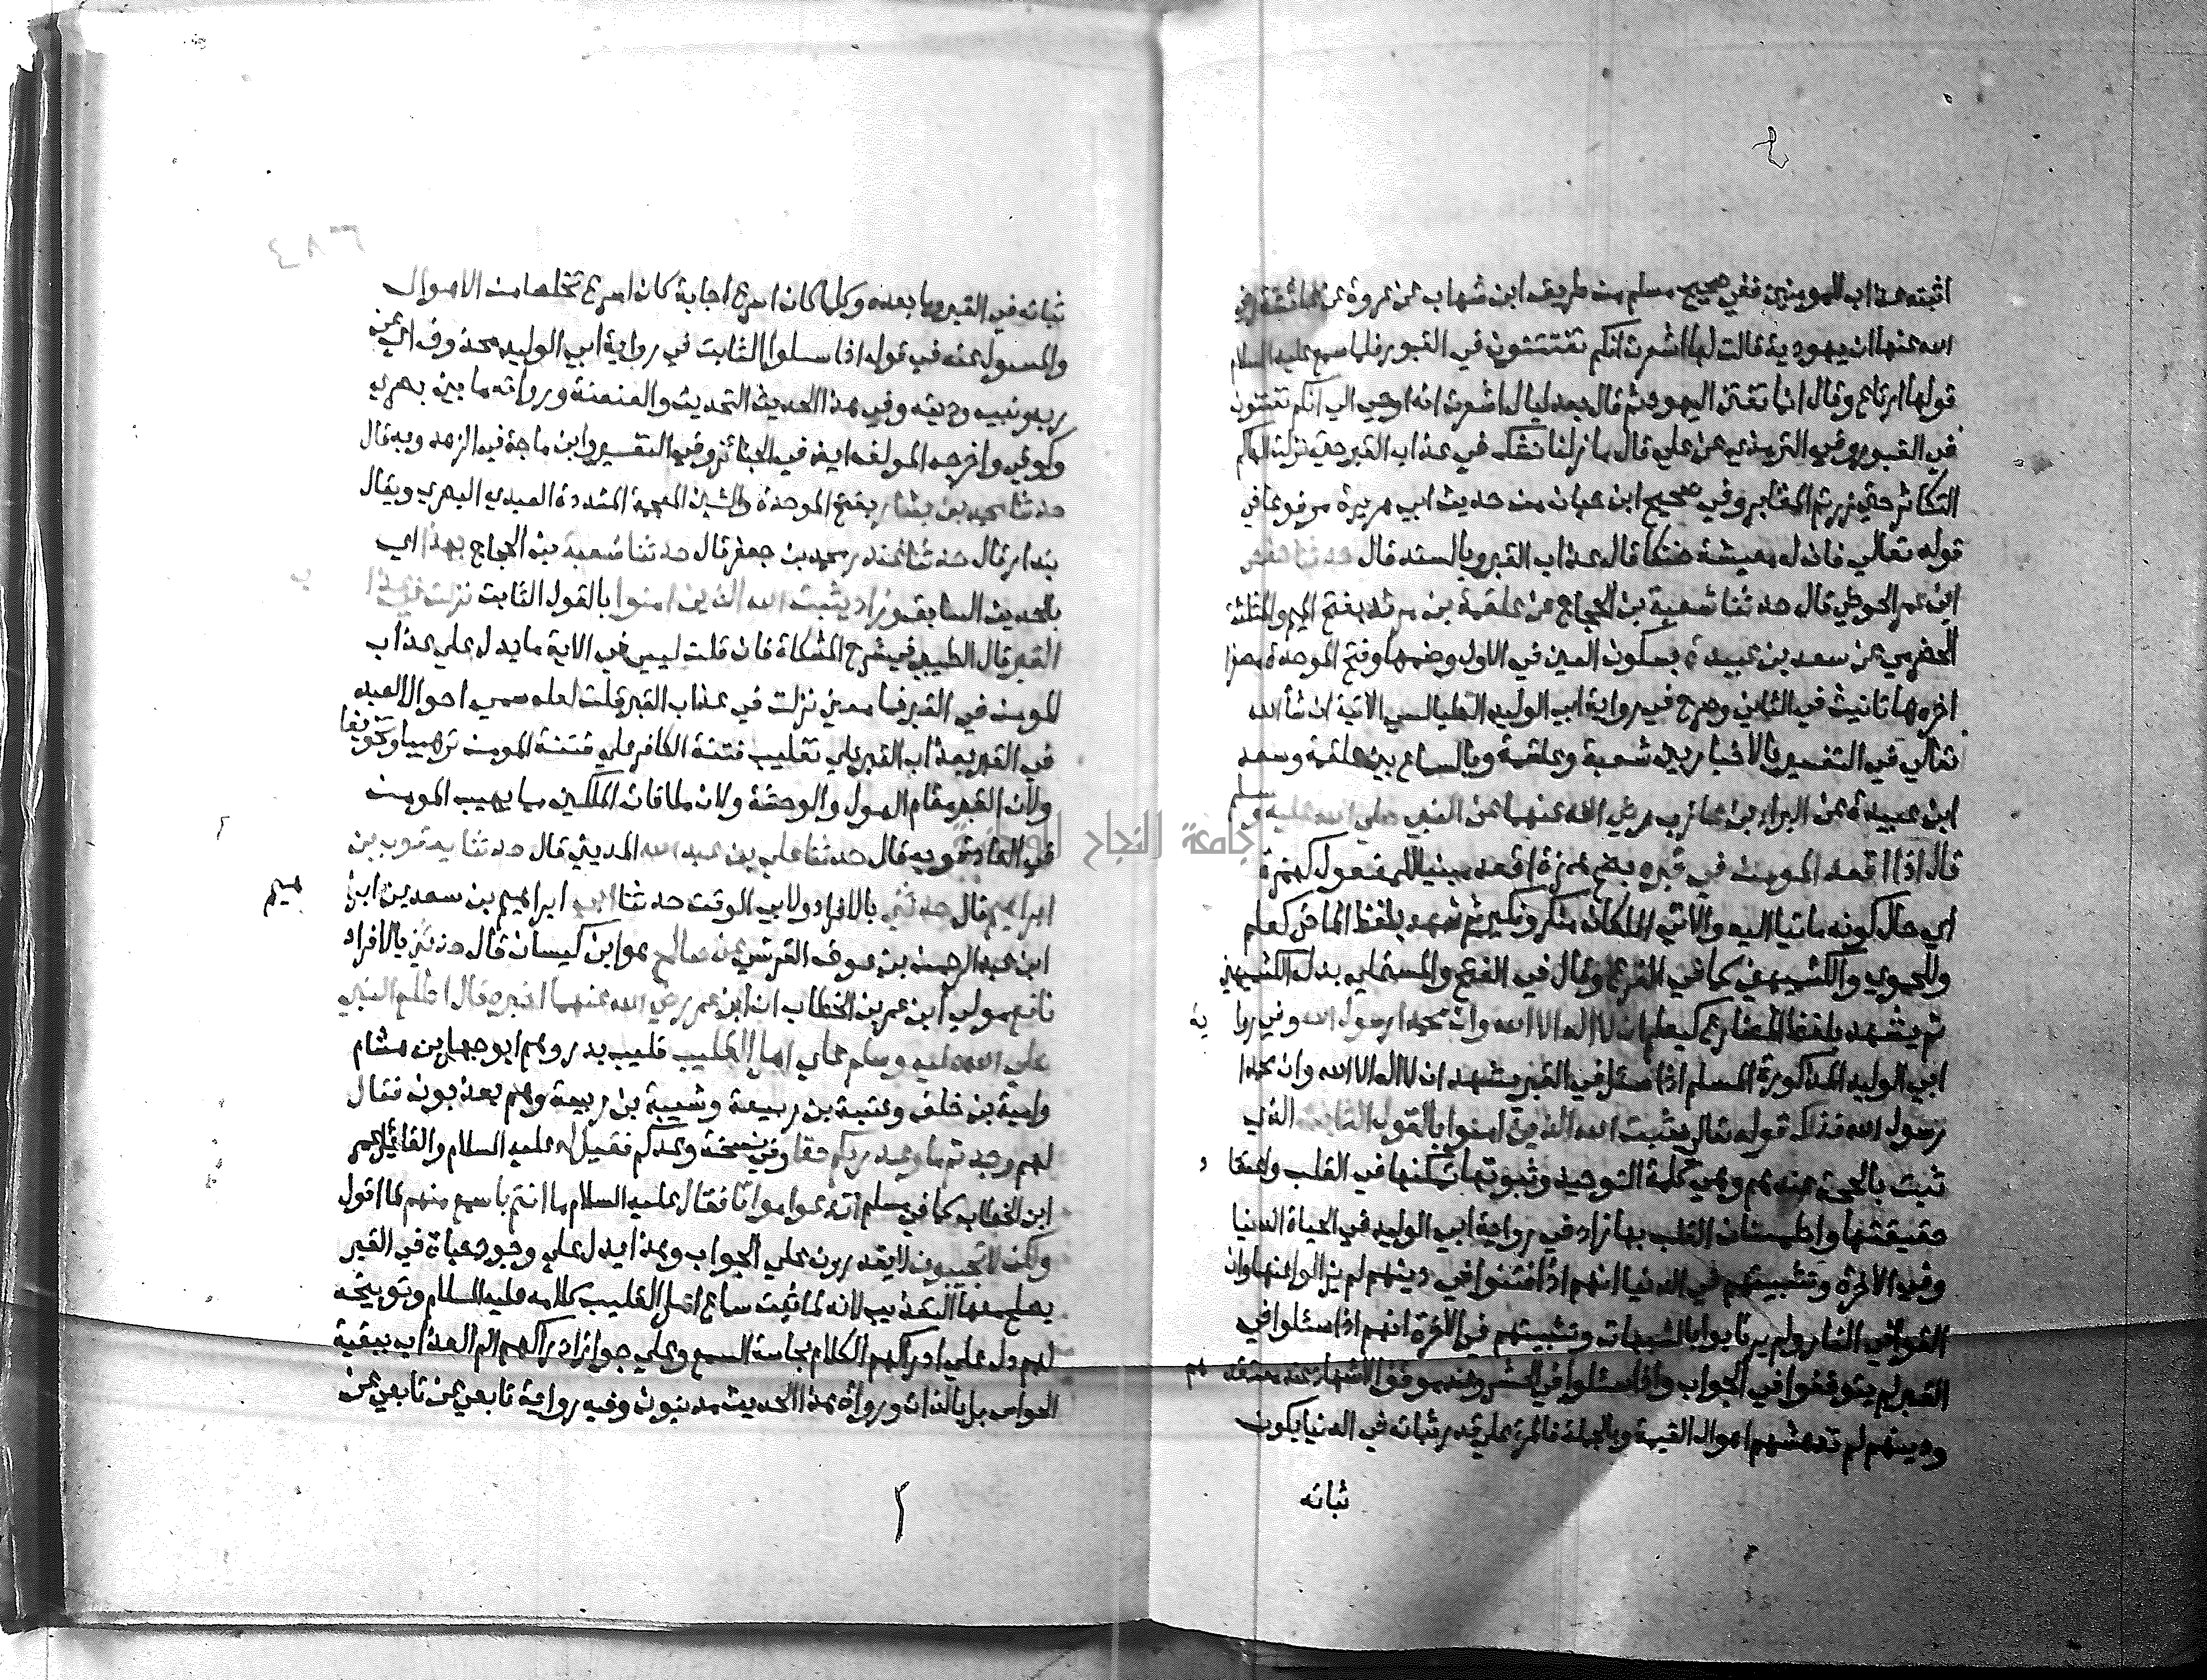 اثبته عذاب المومنين ففي صحيح مسلم من طريق ابن شهاب عن عروة عن عائشة رضي
الله عنها ان يهودية قالت لها اشعرت انكم تفتنون في القبور فلما سمع عليه السلام
قولها ارتاع وقال انما تفتن اليهود ثم قال بعد ليال اشعرت انه اوحي الي انكم تفتنون
في القبور وفي الترمذي عن علي قال ما زلنا نشك في عذاب القبر حتى نزلت الهاكم
التكاثر حتي زرتم المقابر وفي صحيح ابن حبان من حديث ابي هريرة مرفوعا في
قوله تعالي فان له معيشة ضنكا قال عذاب القبر وبالسند قال حدثنا حفص
ابن عمر الحوضي قال حدثنا شعبة بن الحجاج عن علقمة بن مرثد بفتح الميم والمثلثة
الحضرمي عن سعد بن عبيدة بسكون العين في الاول وضمها وفتح الموحدة مصغرا
اخره هاتانيث في الثاني وصرح في رواية ابي الوليد الطيالسي الاتية ان شا الله
تعالي في التفسير بالاخبار بين شعبة وعلقمة وبالسماع بين علقمة وسعد
ابن عبيدة عن البراء بن عازب رضي الله عنهما عن النبي صلي الله عليه وسلم
قال اذا اقعد المومن في قبره بضم همزة اقعد مبنيا للمفعول كهمزة
اي حال كونه ماتيا اليه والاتي الملكان منكر ونكير ثم شهد بلفظ الماضي كعلم
وللحموي والكشميهني كما في الفرع وقال في الفتح والمستملي بدل الكشميهني
ثم يشهد بلفظ المضارع كيعلم ان لا اله الا الله وان محمدا رسول الله وفي رواية
ابي الوليد المذكورة المسلم اذا سئل في القبر يشهد ان لا اله الا الله وان محمدا
رسول الله فذلك قوله تعالي يثبت الله الذين امنوا بالقول الثابت الذي
ثبت بالحجة عندهم وهي كلمة التوحيد وثبوتها تمكنها في القلب واعتقاد
حقيقتها واطمئنان القلب بها زاد في رواية ابي الوليد في الحياة الدنيا
وفي الاخرة وتثبيتهم في الدنيا انهم اذا فتنوا في دينهم لم يزالوا عنها وان
القوا في النار ولم يرتابوا بالشبهات وتثبيتهم في الاخرة انهم اذا سئلوا في
القبر لم يتوقفوا في الجواب واذا سئلوا في الحشر وعند موقف الاشهاد عند معتقدهم
ودينهم لم تدهشهم اهوال القيمة وبالجملة فالمرء علي قدر ثباته في الدنيا يكون
ثباته
ثباته في القبر وما بعده وكلما كان اسرع اجابة كان اسرع تخلصا من الاهوال
والمسول عنه في قوله اذا سلوا الثابت في رواية ابي الوليد محذوف اي عن
ربه ونبيه ودينه وفي هذا الحديث التحديث والعنعنة ورواته ما بين بصري
وكوفي واخرجه المولف ايضا في الجنائز وفي التفسير وابن ماجة في الزهد وبه قال
حدثنا محمد بن بشار بفتح الموحدة والشين المعجمة المشددة العبدي البصري ويقال
بندار قال حدثنا غندر محمد بن جعفر قال حدثنا شعبة بن الحجاج بهذا اي
بالحديث السابق وزاد يثبت الله الذين امنوا بالقول الثابت نزلت في عذاب
القبر قال الطيبي في شرح المشكاة فان قلت ليس في الاية ما يدل علي عذاب
المومن في القبر فما معني نزلت في عذاب القبر قلت لعله سمي احوال العبد
في القبر بعذاب القبر علي تغليب فتنة الكافر علي فتنة المومن ترهيبا وتخويفا
ولان القبر مقام الهول والوحشة ولان ملاقات الملكين مما يهيب المومن
في العادة وبه قال حدثنا علي بن عبد الله المديني قال حدثنا يعقوب بن
ابراهيم قال حدثني بالافراد ولابي الوقت حدثنا ابي ابراهيم بن سعد بن ابراهيم
ابن عبد الرحمن بن عوف القرشي عن صالح هو ابن كيسان قال حدثني بالافراد
نافع مولي ابن عمر بن الخطاب ان ابن عمر رضي الله عنهما اخبره قال اطلع النبي
صلي الله عليه وسلم علي اهل القليب قليب بدر وهم ابو جهل بن هشام
وامية بن خلف وعتبة بن ربيعة وشيبة بن ربيعة وهم يعذبون فقال
لهم وجدتم ما وعد ربكم حقا وفي نسخة وعدكم فقيل له عليه السلام والقائل عمر
ابن الخطاب كما في مسلم اتدعوا امواتا فقال عليه السلام ما انتم باسمع منهم لما اقول
ولكن لا يجيبون لا يقدرون علي الجواب وهذا يدل علي وجود حياة في القبر
يصلح معها التعذيب لانه لما ثبت سماع اهل القليب كلامه عليه السلام وتوبيخه
لهم دل علي ادراكهم الكلام بحاسة السمع وعلي جواز ادراكهم الم العذاب ببقية
الحواس بل بالذات ورواة هذا الحديث مدنيون وفيه رواية تابعي عن تابعي عن
جامعة النجاح الوطنية